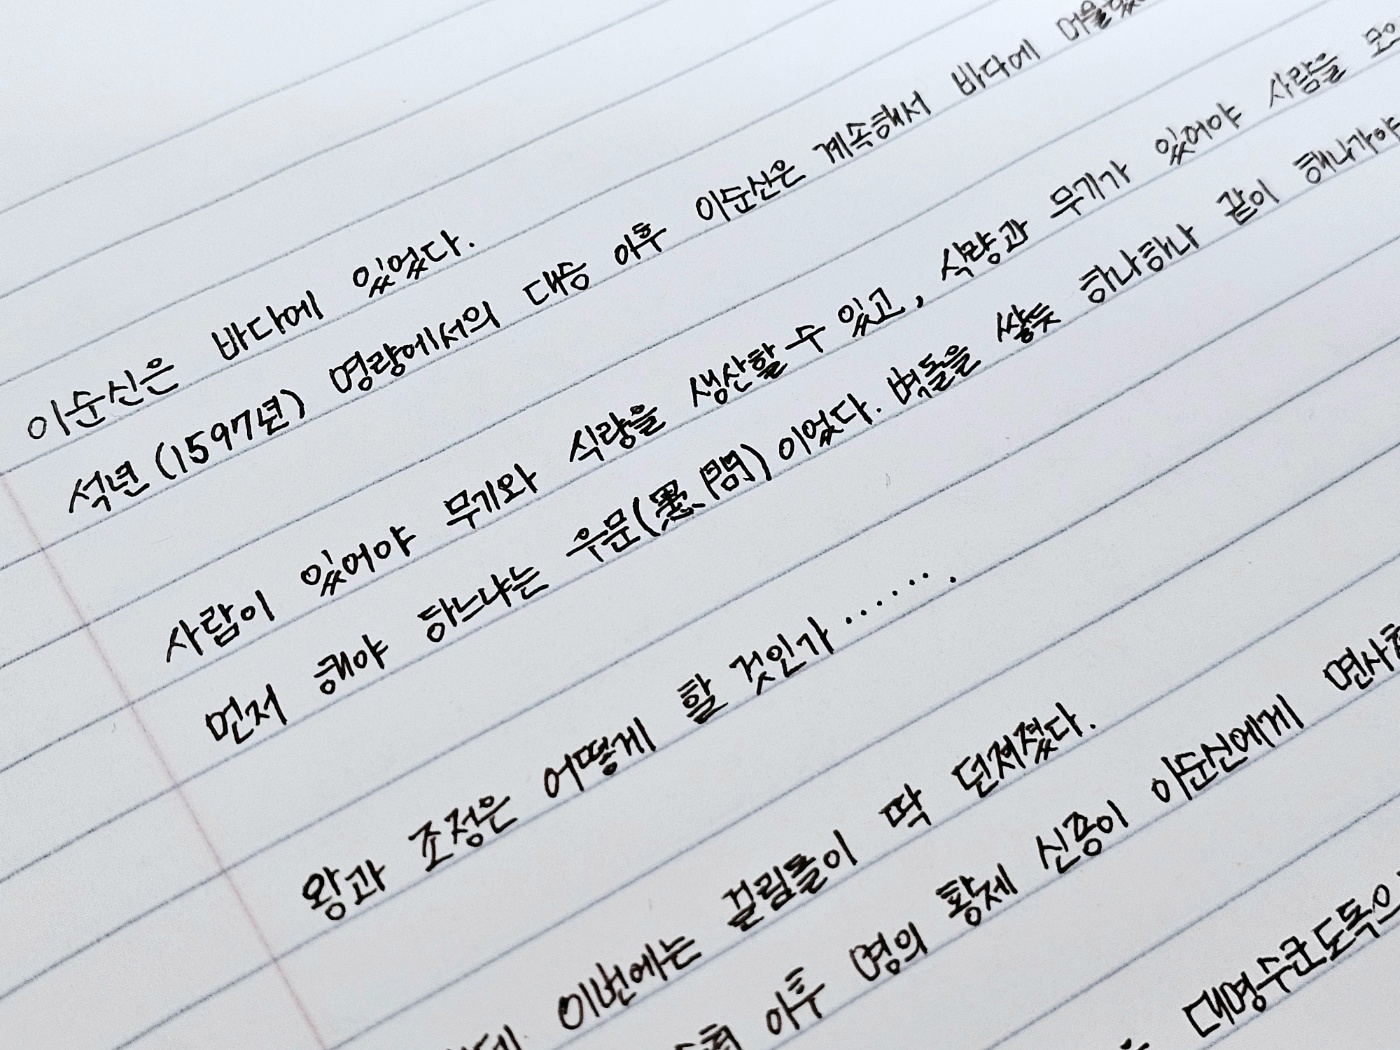 이순신은 바다에 있었다.
석년(1597년) 명량에서의 대승 이후 이순신은 계속해서 바다에
사람이 있어야 무기와 식량을 생산할 수 있고, 식량과 무기가 있어야 사람을
먼저 해야 하느냐는 우문(愚問)이었다. 벽돌을 쌓듯 하나하나 같이 해나가야
왕과 조정은 어떻게 할 것인가…….
이번에는 걸림돌이 딱 던져졌다.
이후 명의 황제 신종이 이순신에게
대명수군도독